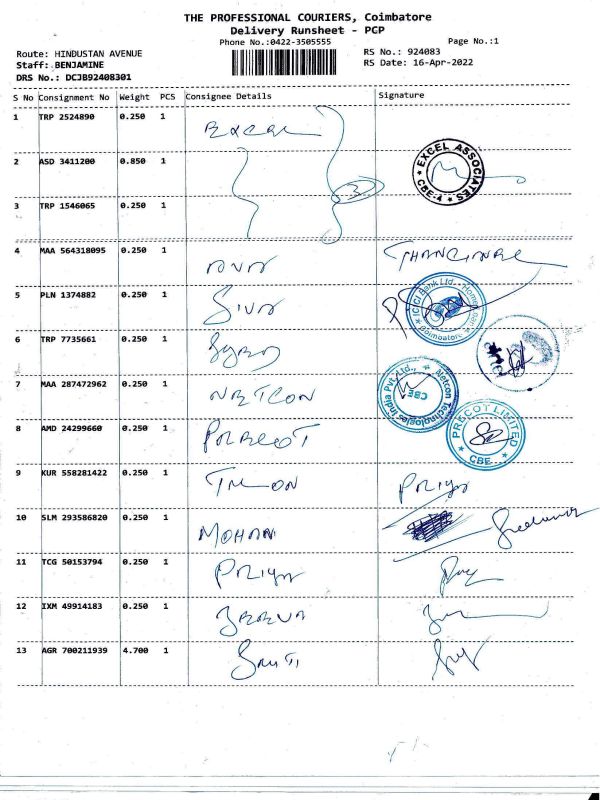 THE PROFESSIONAL COURIERS, Coimbatore
Delivery Runsheet - PCP
Phone No.:0422-3505555
Page No.:1
Route: HINDUSTAN AVENUE
RS No.: 924083
Staff: BENJAMINE
RS Date: 16-Apr-2022
DRS No.: DCJB92408301
S No Consignment No Weight PCS Consignee Details Signature
1 TRP 2524890 0.250 1 Excel
2 ASD 3411200 0.850 1 EXCEL ASSOCIATES CBE-4
3 TRP 1546065 0.250 1
4 MAA 564318095 0.250 1
5 PLN 1374882 0.250 1 Siva ICICI Bank Ltd. Coimbatore
6 TRP 7735661 0.250 1
7 MAA 287472962 0.250 1 NETCON Netcon Technologies India Pvt. Ltd., CBE
8 AMD 24299660 0.250 1 PRECOT PRECOT LIMITED CBE
9 KUR 558281422 0.250 1 Priya
10 SLM 293586820 0.250 1 MOHAN
11 TCG 50153794 0.250 1 PRIYA
12 IXM 49914183 0.250 1
13 AGR 700211939 4.700 1